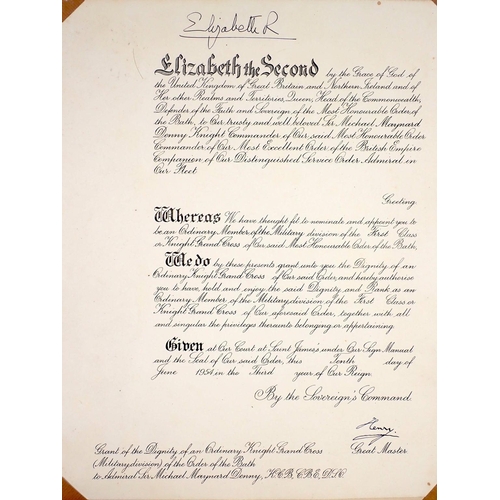 Elizabeth R
Elizabeth the Second by the Grace of God of
the United Kingdom of Great Britain and Northern Ireland and of
Her other Realms and Territories, Queen, Head of the Commonwealth,
Defender of the Faith and Sovereign of the Most Honourable Order of
the Bath, to Our trusty and well beloved Sir Michael Maynard
Denny Knight Commander of Our said Most Honourable Order
Commander of Our Most Excellent Order of the British Empire
Companion of Our Distinguished Service Order Admiral in
Our Fleet
Greeting
Whereas We have thought fit to nominate and appoint you to
be an Ordinary Member of the Military division of the First Class
or Knight Grand Cross of Our said Most Honourable Order of the Bath,
We do by these presents grant unto you the Dignity of an
Ordinary Knight Grand Cross of Our said Order, and hereby authorise
you to have, hold and enjoy the said Dignity and Rank as an
Ordinary Member of the Military division of the First Class or
Knight Grand Cross of Our aforesaid Order, together with all
and singular the privileges thereunto belonging or appertaining.
Given at Our Court at Saint James's under Our Sign Manual
and the Seal of Our said Order, this Tenth day of
June 1954 in the Third year of Our Reign.
By the Sovereign's Command.
Henry
Great Master
Grant of the Dignity of an Ordinary Knight Grand Cross
(Military division) of the Order of the Bath
to Admiral Sir Michael Maynard Denny, K.C.B., C.B.E., D.S.O.